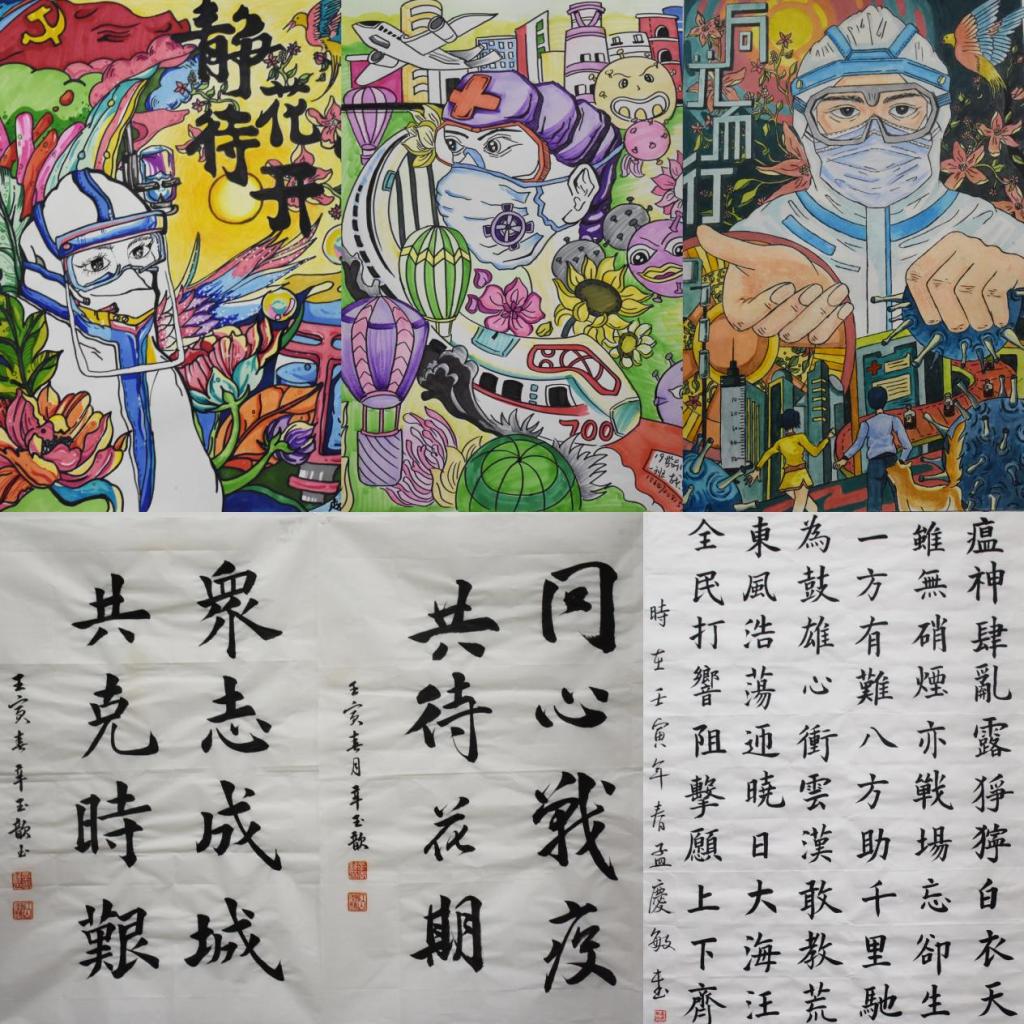 静待
花开
700
向光而行
眾志成城
共克時艱
壬寅春
同心戰疫
共待花期
壬寅春月
瘟神肆亂露猙獰白衣天
雖無硝煙亦戰場忘卻生
一方有難八方助千里馳
為鼓雄心衝雲漢敢教荒
東風浩蕩迎曉日大海汪
全民打響阻擊願上下齊
時在壬寅年春孟慶敏書